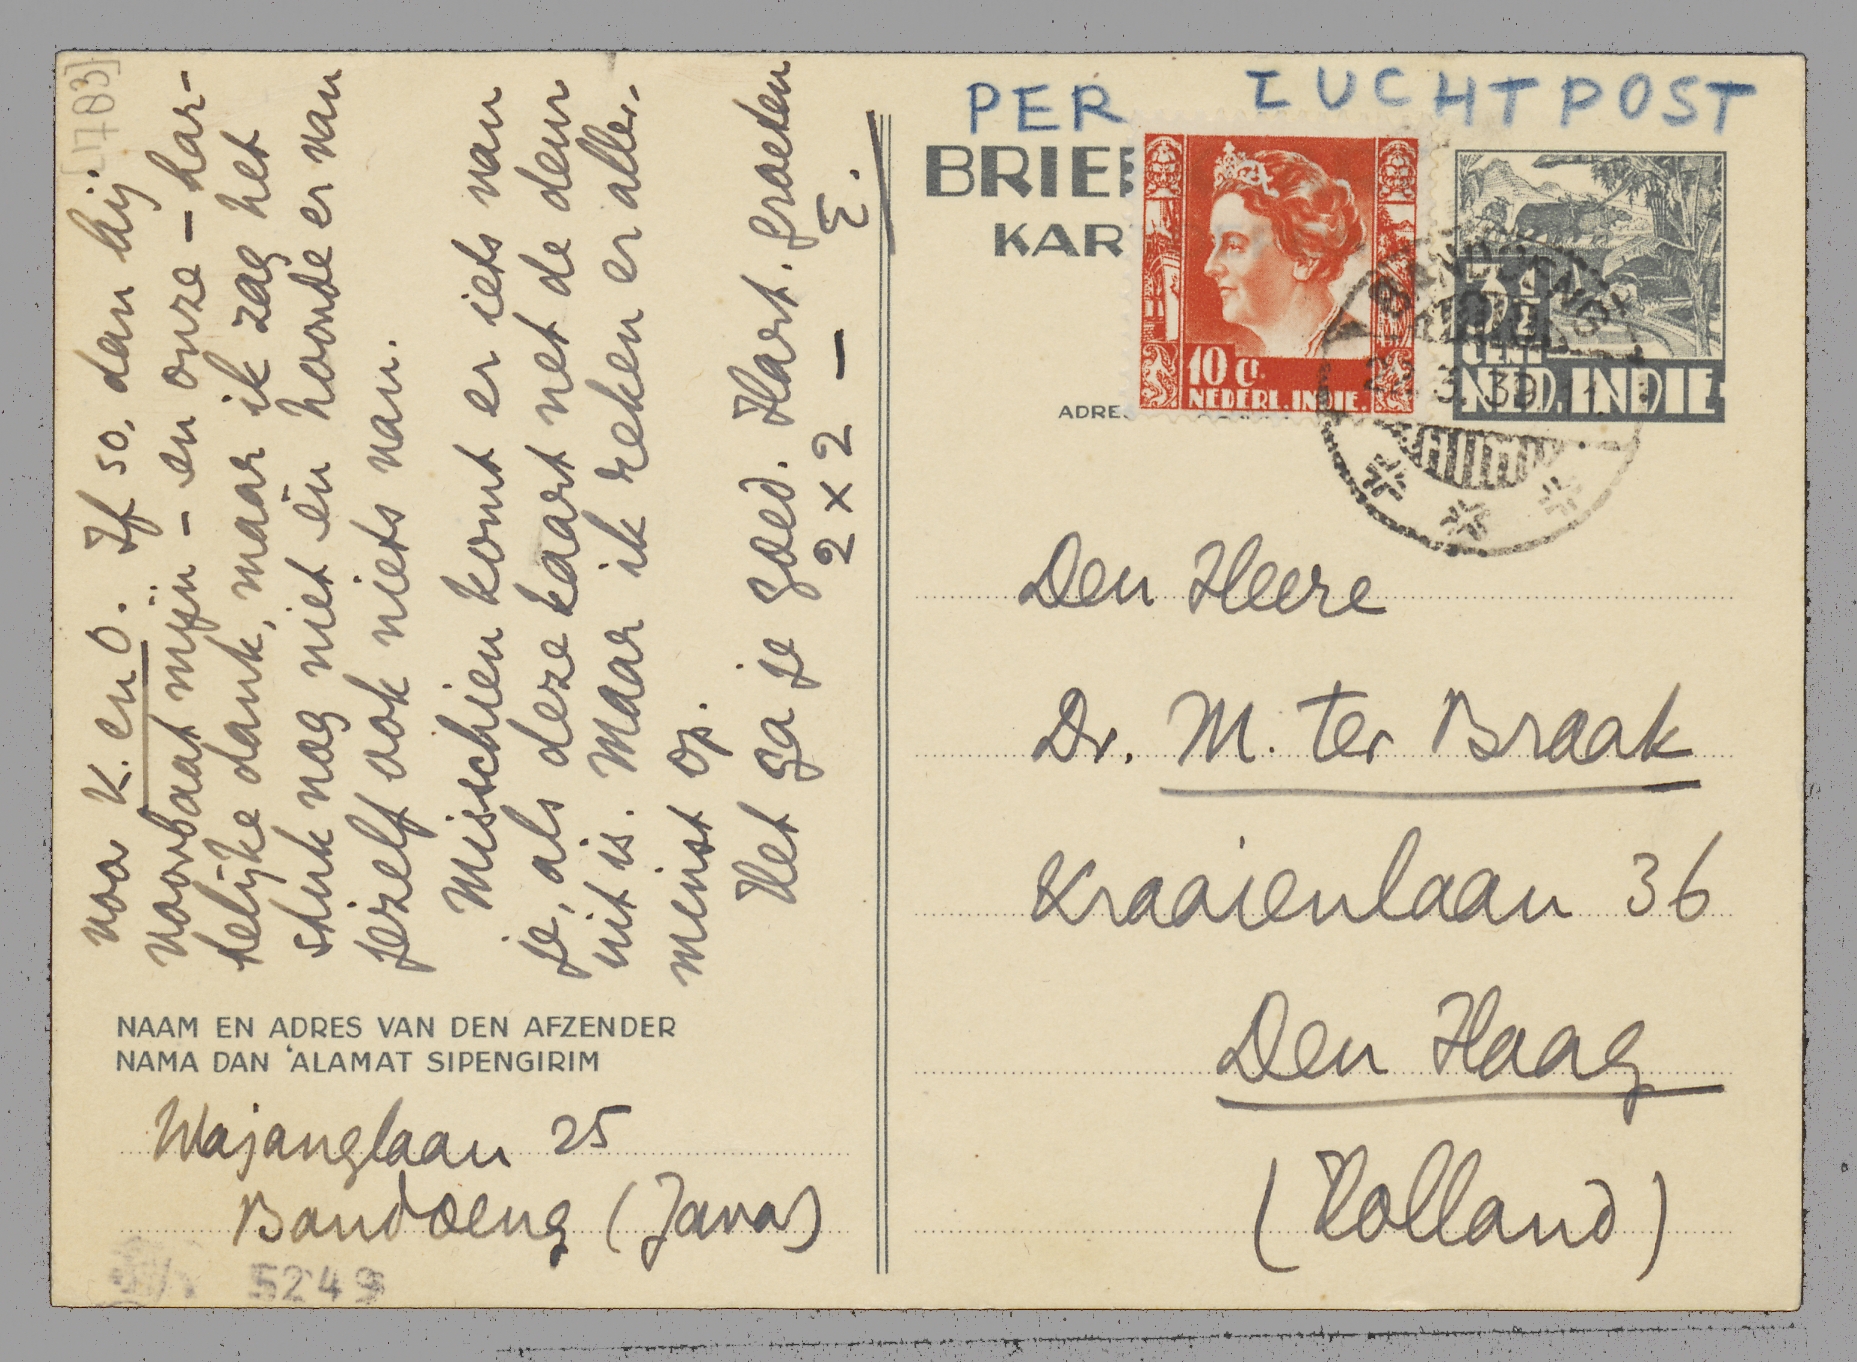 [1783]
voor K. en O. If so, dan bij
voorbaat mijn – en onze – har-
telijke dank, maar ik zag het
stuk nog niet en hoorde er van
jezelf ook niets van.
Misschien komt er iets van
je, als deze kaart net de deur
uit is. Maar ik reken er aller-
minst op.
Het ga je goed. Hart. groeten
2 x 2 — E.
NAAM EN ADRES VAN DEN AFZENDER
NAMA DAN 'ALAMAT SIPENGIRIM
Wajanglaan 25
Bandoeng (Java)
5249
PER LUCHTPOST
BRIEF
KAR
ADRES
10 ct.
NEDERL. INDIE.
3½
CENT
NED. INDIE
BANDOENG
3.39
Den Heere
Dr. M. ter Braak
Kraaienlaan 36
Den Haag
(Holland)